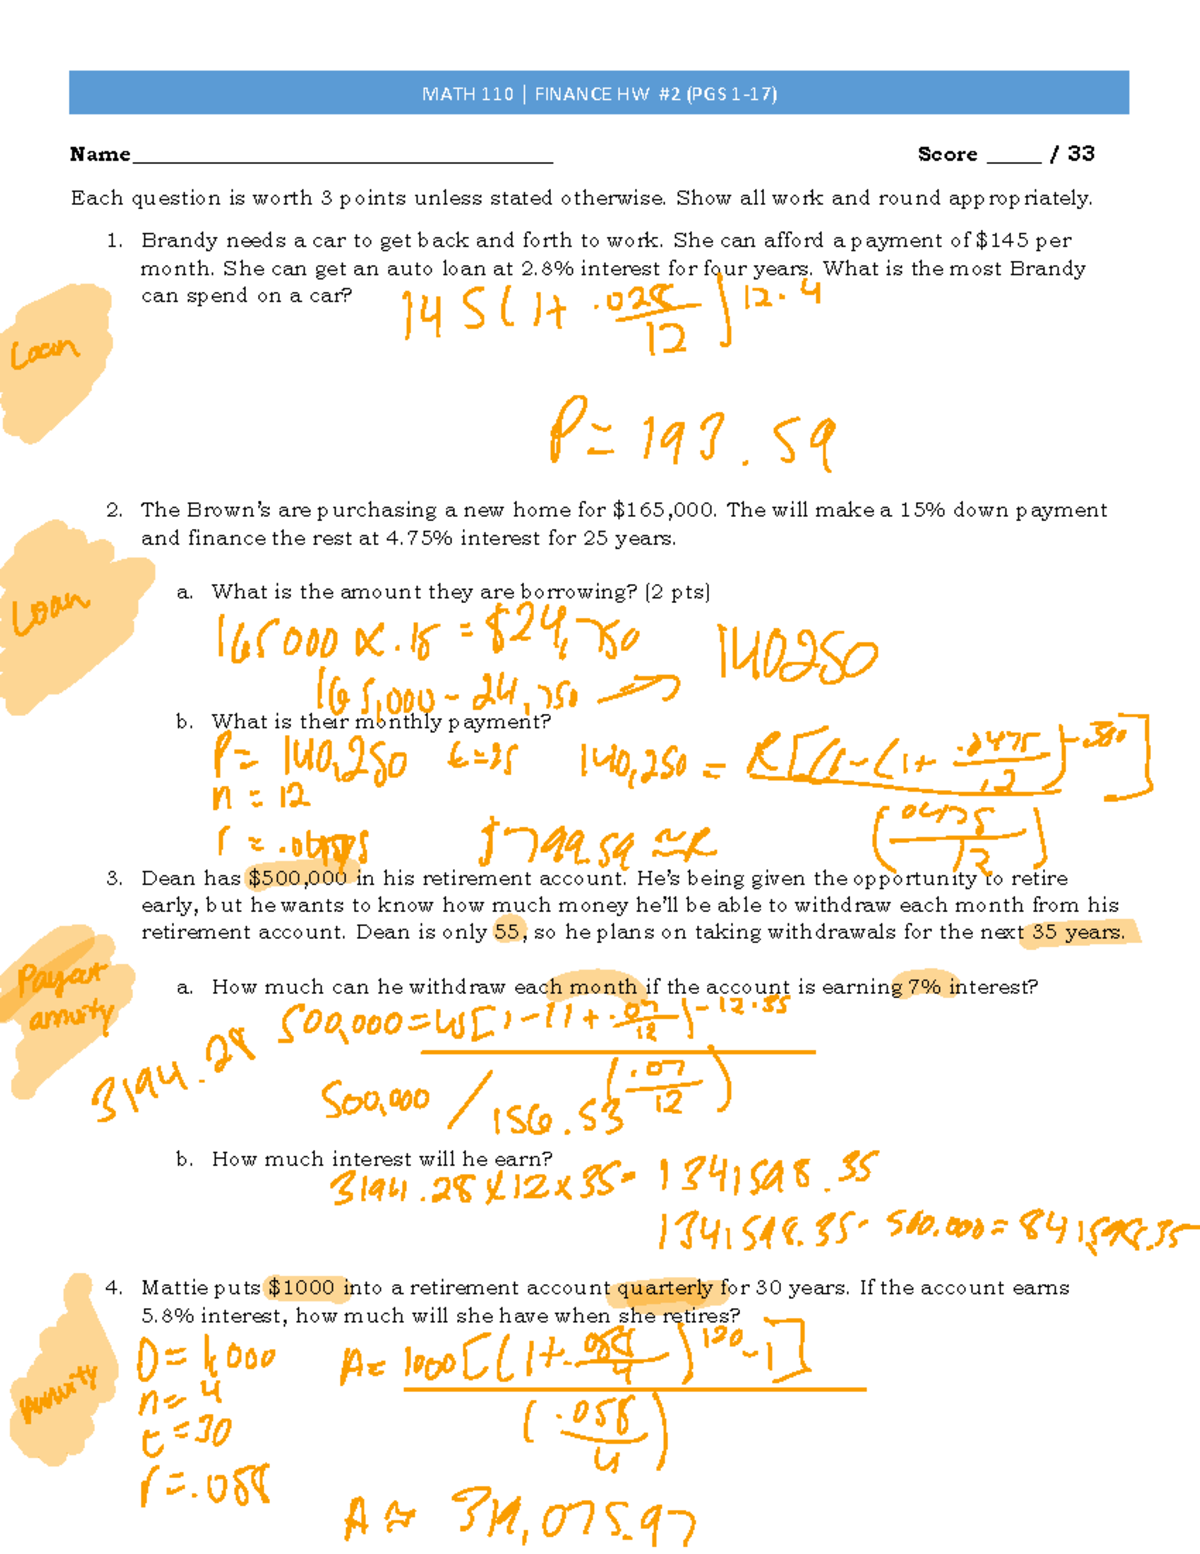 MATH 110 | FINANCE HW #2 (PGS 1-17)
Name Score / 33
Each question is worth 3 points unless stated otherwise. Show all work and round appropriately.
1. Brandy needs a car to get back and forth to work. She can afford a payment of $145 per
month. She can get an auto loan at 2.8% interest for four years. What is the most Brandy
can spend on a car?
145(1+ .028/12)^12·4
Loan
P=193.59
2. The Brown's are purchasing a new home for $165,000. The will make a 15% down payment
and finance the rest at 4.75% interest for 25 years.
Loan
a. What is the amount they are borrowing? (2 pts)
165000 x .15 = $24,750 140250
165,000 - 24,750 →
b. What is their monthly payment?
P= 140,250 t=25 140,250 = R[(1-(1+ .0475/12)
n = 12 (.0475/12)
r = $799.59 ≈ R
3. Dean has $500,000 in his retirement account. He's being given the opportunity to retire
early, but he wants to know how much money he'll be able to withdraw each month from his
retirement account. Dean is only 55, so he plans on taking withdrawals for the next 35 years.
Payout
annuity
a. How much can he withdraw each month if the account is earning 7% interest?
500,000=W[1-(1+.07/12)^-12·35
3194.28 (.07/12)
500,000 / 156.53
b. How much interest will he earn?
3194.28 x 12 x 35= 1341598.35
1341598.35- 500.000= 841,598.35
4. Mattie puts $1000 into a retirement account quarterly for 30 years. If the account earns
5.8% interest, how much will she have when she retires?
D= 1,000 A= 1000[(1+.058/4)^120 -1]
n= 4 (.058/4)
t=30
r=.058
annuity
A≈ 319,075.97